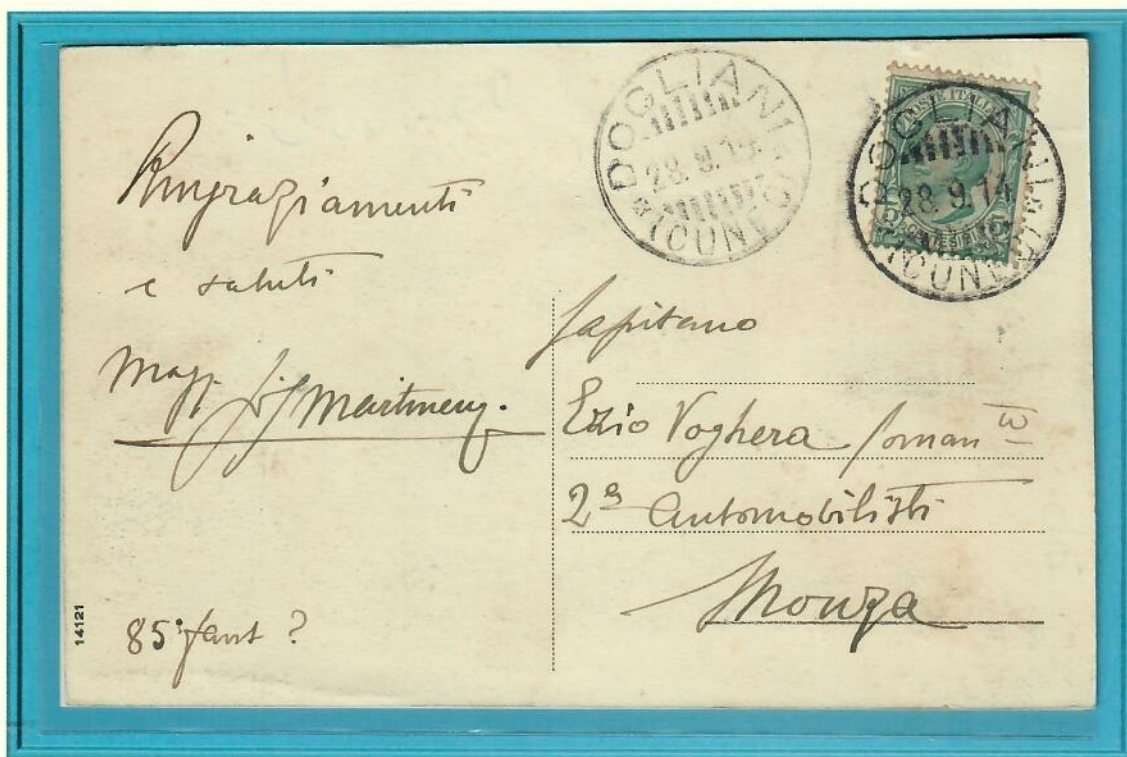 Ringraziamenti
e saluti
Magg. Martinery.
85° fant ?
14121
DOGLIANI
28.9.14
(CUNEO)
POSTE ITALIANE
DOGLIANI
28.9.14
(CUNEO)
Capitano
Ezio Voghera
2ª Automobilisti
Monza